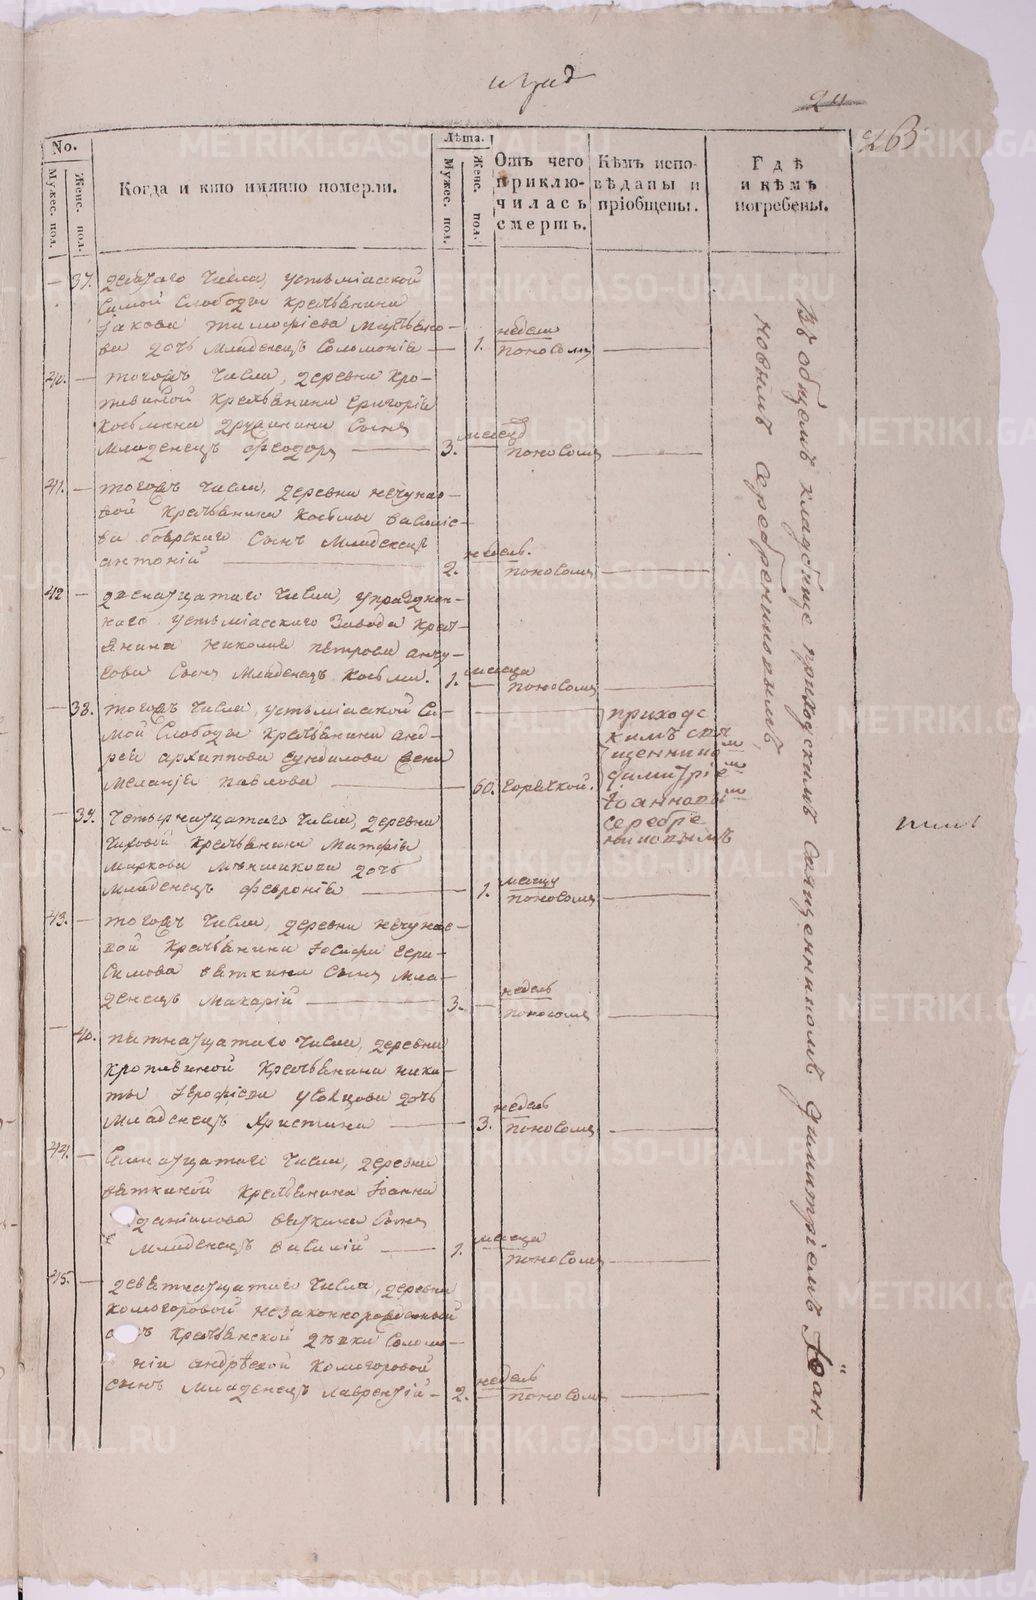 24
263
No.
Мужес. пол.
Женс. пол.
Когда и кто имянно померли.
Лѣта.
Мужес. пол.
Женс. пол.
Отъ чего
приклю-
чилась
смерть.
Кѣмъ испо-
вѣданы и
пріобщены.
Гдѣ
и кѣмъ
погребены.
37. девятаго числа, устьміасской
Самой Слободы крестьянина
Іакова тимофѣева
дочь младенецъ Соломонія — 1. недели поносомъ
40. — тогожъ числа, деревни кро-
пивиной крестьянина Григорія
козьмина дружинина Сынъ
младенецъ феодоръ — 3. месяцъ поносомъ
41. — тогожъ числа, деревни нечунае-
вой крестьянина козьмы василіе-
ва боярскаго Сынъ младенецъ
антоній — 2. недель. поносомъ
42 — двенатцатаго числа, упразднен-
наго устьміасскаго завода крест-
янина николая петрова анчу-
гова Сынъ младенецъ козьма. 1. месяца поносомъ
— 38. тогожъ числа, устьміасской Са-
мой Слободы крестьянина анд-
рея архиппова жена
меланія павлова — 60. Горячкой.
приходс
кимъ свя
щенником
димитріем
Іоанновым
серебре
никовымъ
— 39. Четырнатцатаго числа, деревни
крестьянина матфія
маркова меншикова дочь
младенецъ февронія — 1. месяцъ поносомъ
43. — тогожъ числа, деревни нечунае-
вой крестьянина Іосифа гера-
симова вяткина сынъ мла-
денецъ макарій — 3. недель поносомъ
— 40. пятнатцатаго числа, деревни
кропивиной крестьянина ники-
ты Ерофіева усольцова дочь
младенецъ христина — 3. недель поносомъ
44. — Семнатцатаго числа, деревни
вяткиной крестьянина Іоанна
даніилова вяткина сынъ
младенецъ василій — 1. месяца поносомъ
45. — девятнатцатаго числа, деревни
комогоровой незаконнорожденный
крестьянской дѣвки Соломо-
ніи андреевой комогоровой
сынъ младенецъ лаврентій — 2. недель поносомъ
Въ общемъ кладбище приходскимъ Священникомъ Димитріемъ Іоан-
новымъ серебренниковымъ,